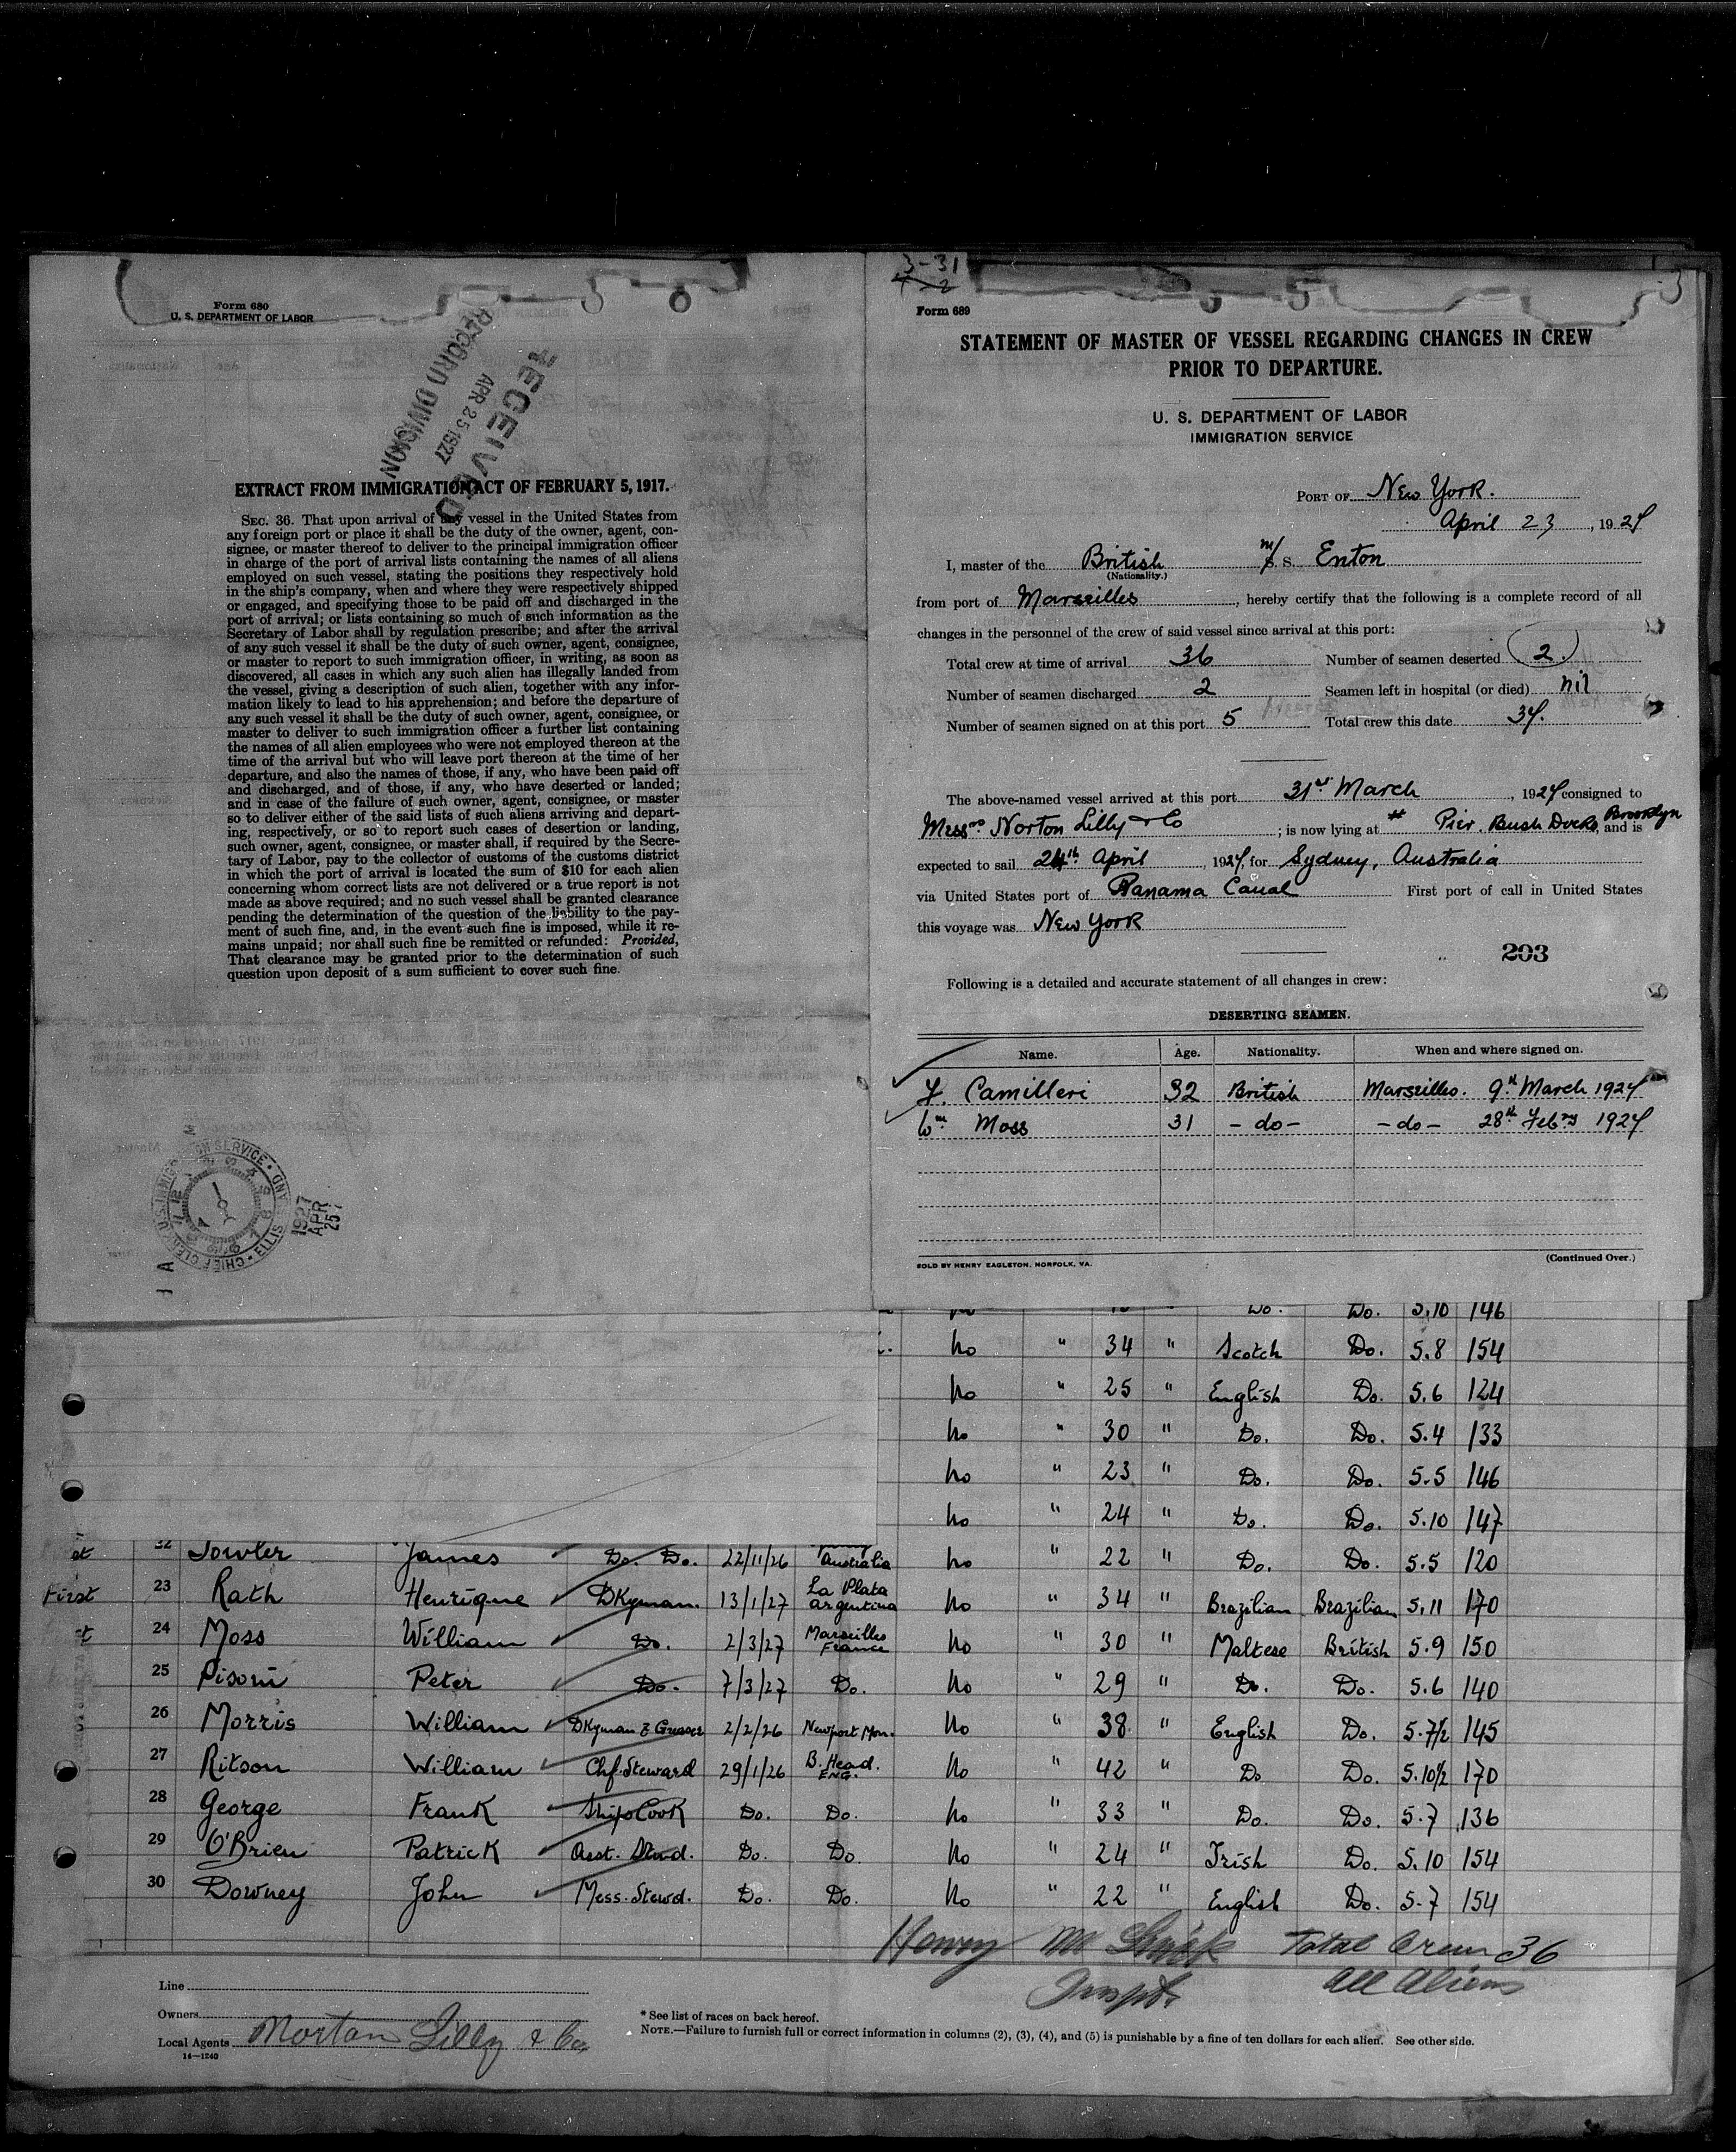 Form 680
U. S. DEPARTMENT OF LABOR
RECEIVED
APR 25 1927
RECORD DIVISION
EXTRACT FROM IMMIGRATION ACT OF FEBRUARY 5, 1917.
SEC. 36. That upon arrival of any vessel in the United States from
any foreign port or place it shall be the duty of the owner, agent, con-
signee, or master thereof to deliver to the principal immigration officer
in charge of the port of arrival lists containing the names of all aliens
employed on such vessel, stating the positions they respectively hold
in the ship's company, when and where they were respectively shipped
or engaged, and specifying those to be paid off and discharged in the
port of arrival; or lists containing so much of such information as the
Secretary of Labor shall by regulation prescribe; and after the arrival
of any such vessel it shall be the duty of such owner, agent, consignee,
or master to report to such immigration officer, in writing, as soon as
discovered, all cases in which any such alien has illegally landed from
the vessel, giving a description of such alien, together with any infor-
mation likely to lead to his apprehension; and before the departure of
any such vessel it shall be the duty of such owner, agent, consignee, or
master to deliver to such immigration officer a further list containing
the names of all alien employees who were not employed thereon at the
time of the arrival but who will leave port thereon at the time of her
departure, and also the names of those, if any, who have been paid off
and discharged, and of those, if any, who have deserted or landed;
and in case of the failure of such owner, agent, consignee, or master
so to deliver either of the said lists of such aliens arriving and depart-
ing, respectively, or so to report such cases of desertion or landing,
such owner, agent, consignee, or master shall, if required by the Secre-
tary of Labor, pay to the collector of customs of the customs district
in which the port of arrival is located the sum of $10 for each alien
concerning whom correct lists are not delivered or a true report is not
made as above required; and no such vessel shall be granted clearance
pending the determination of the question of the liability to the pay-
ment of such fine, and, in the event such fine is imposed, while it re-
mains unpaid; nor shall such fine be remitted or refunded: Provided,
That clearance may be granted prior to the determination of such
question upon deposit of a sum sufficient to cover such fine.
U.S. IMMIGRATION SERVICE
CHIEF CLERK
ELLIS
1927
APR
25
3-31
Form 689
STATEMENT OF MASTER OF VESSEL REGARDING CHANGES IN CREW
PRIOR TO DEPARTURE.
U. S. DEPARTMENT OF LABOR
IMMIGRATION SERVICE
PORT OF New York.
April 23, 1927
I, master of the British m/s. S. Enton
(Nationality.)
from port of Marseilles, hereby certify that the following is a complete record of all
changes in the personnel of the crew of said vessel since arrival at this port:
Total crew at time of arrival 36 Number of seamen deserted 2.
Number of seamen discharged 2 Seamen left in hospital (or died) nil
Number of seamen signed on at this port 5 Total crew this date 37.
The above-named vessel arrived at this port 31st March, 1927 consigned to
Messrs Norton Lilly & Co; is now lying at # Pier. Bush Docks, Brooklyn and is
expected to sail 24th April, 1927, for Sydney, Australia
via United States port of Panama Canal First port of call in United States
this voyage was New York
203
Following is a detailed and accurate statement of all changes in crew:
DESERTING SEAMEN.
Name. Age. Nationality. When and where signed on.
F. Camilleri 32 British Marseilles. 9th March 1927
Wm Moss 31 - do - - do - 28th Febry 1927
SOLD BY HENRY EAGLETON, NORFOLK, VA. (Continued Over.)
Do. Do. 5.10 146
No " 34 " Scotch Do. 5.8 154
No " 25 " English Do. 5.6 124
No " 30 " Do. Do. 5.4 133
No " 23 " Do. Do. 5.5 146
No " 24 " Do. Do. 5.10 147
James Do. Do. 22/11/26 Australia No " 22 " Do. Do. 5.5 120
First 23 Rath Henrique DKyman. 13/1/27 La Plata Argentina No " 34 " Brazilian Brazilian 5.11 170
24 Moss William Do. 2/3/27 Marseilles France No " 30 " Maltese British 5.9 150
25 Pisoni Peter Do. 7/3/27 Do. No " 29 " Do. Do. 5.6 140
26 Morris William DKyman & Greaser 2/2/26 Newport Mon. No " 38 " English Do. 5.7½ 145
27 Ritson William Chf. Steward 29/1/26 B. Head. ENG. No " 42 " Do Do. 5.10½ 170
28 George Frank Ships Cook Do. Do. No " 33 " Do. Do. 5.7 136
29 O'Brien Patrick Asst. Stwd. Do. Do. No " 24 " Irish Do. 5.10 154
30 Downey John Mess. Stewd. Do. Do. No " 22 " English Do. 5.7 154
Total Crew 36
Inspt. All Aliens
Line
Owners
Local Agents Norton Lilly & Co.
14—1240
* See list of races on back hereof.
NOTE.—Failure to furnish full or correct information in columns (2), (3), (4), and (5) is punishable by a fine of ten dollars for each alien. See other side.